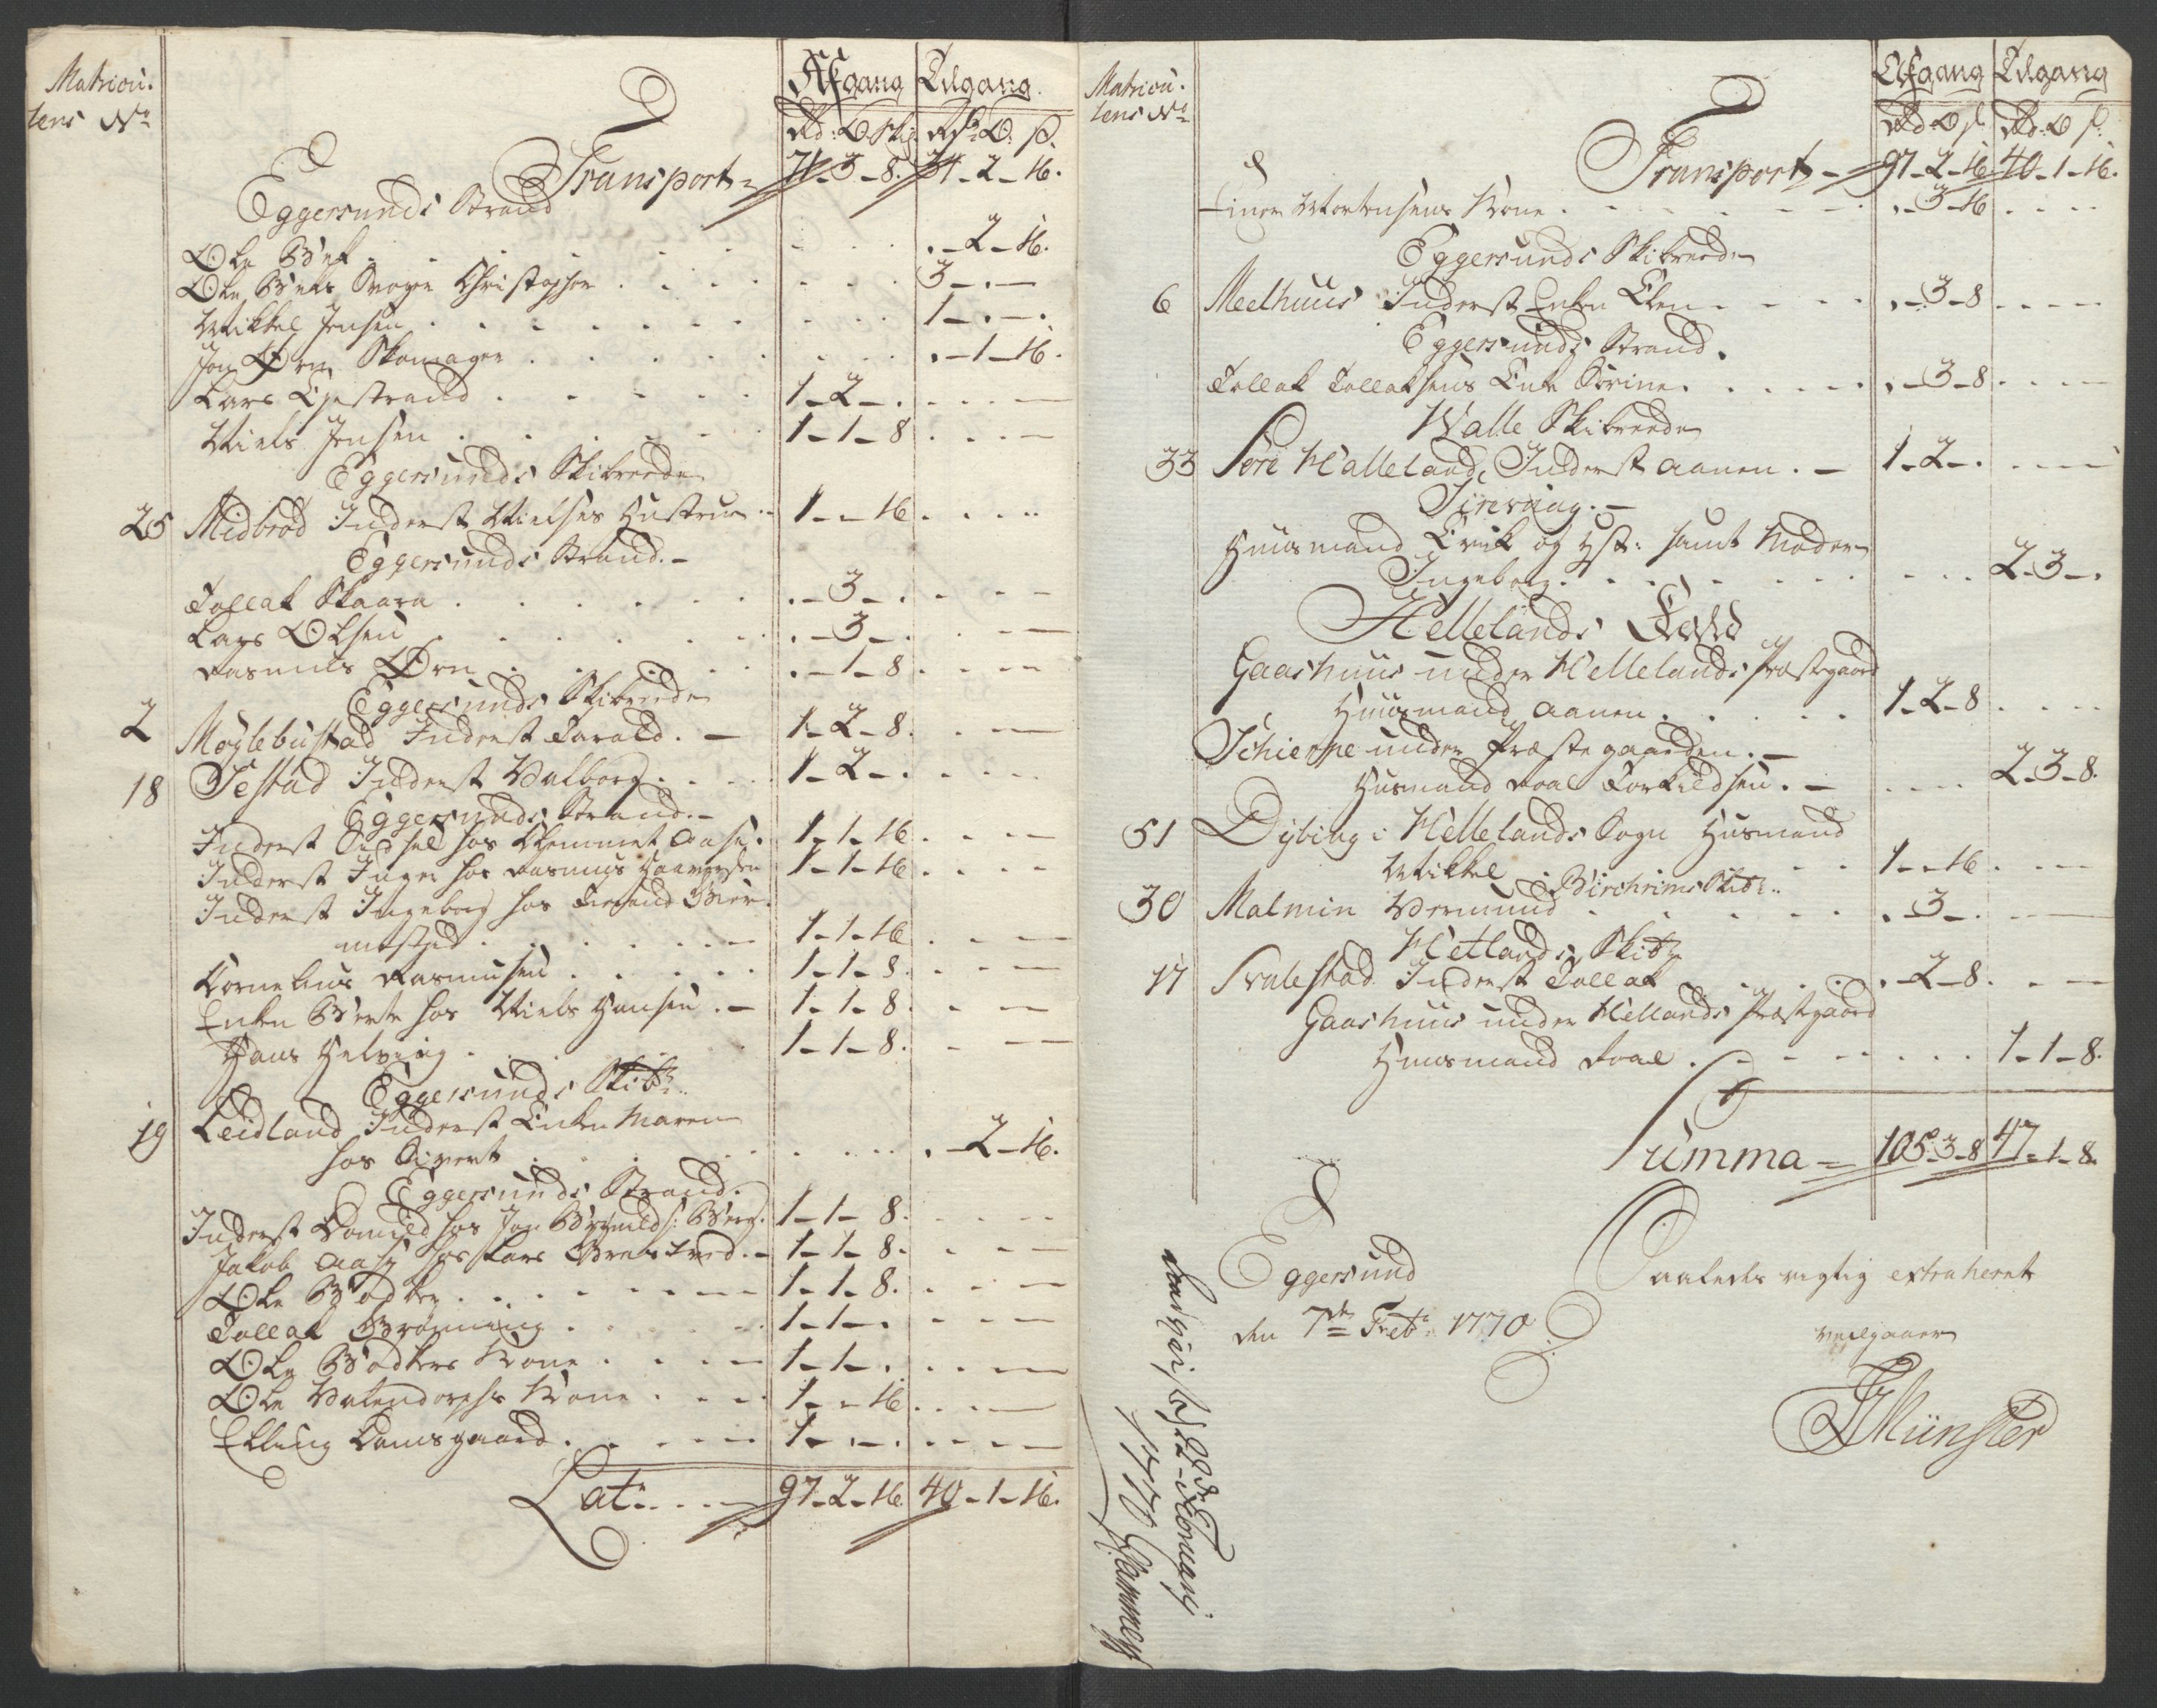 Matricu-
lens No
Afgang Tilgang
Rd: O: sk: Rd: O: s.
Transport 71-3-8. 34-2-16.
Eggersunds Strand
Ole Bek . . . . . -2-16.
Ole Beks Svoger Christopher . . . 3-.-
Mikkel Jensen . . . 1-.-.
Jon Ørn Skomager . . . .-1-16.
Lars Egestrand . . . 1-2-.
Niels Jensen . . . 1-1-8
Eggersunds Skibreede
25 Midbröd Inderst Nielses Hustrue 1--16
Eggersunds Strand.-
Tollak Skaara . . . .-3-.
Lars Olsen . . . .-3-.
Rasmus Ørn . . . .-1-8
Eggersunds Skibreede
2 Möglebustad Inderst Tarald.- 1-2-8.
18 Sestad Inderst Valborg . . . 1-2-.
Eggersunds Strand.-
Inderst Sidsel hos Clemmet Aase. 1-1-16
Inderst Inger hos Rasmus 1-1-16
Inderst Ingeborg hos
. . . 1-1-16
Cornelius Rasmusen . . . 1-1-8.
Enken Berte hos Niels Hansen.- 1-1-8
Hans Helvig . . . 1-1-8.
Eggersunds Skibr:
19 Leidland Inderst Enken Maren
hos Sivert . . . .-2-16.
Eggersunds Strand.
Inderst hos Jon Berg. 1-1-8.
Jakob Aase hos Lars 1-1-8.
Ole Bödker . . . 1-1-8.
Tollak Brönning . . . 1-1-.
Ole Bödkers Kone . . . 1-1-.
Ole Valendorphs Kone . . . 1--16
Elling Damsgaard . . . 1-.-.
Lat: . . . 97-2-16 40-1-16.
Matricu-
lens No
Afgang Tilgang
Rd: O s Rd: O s:
Transport 97-2-16 40-1-16.
Einer Mortensens Kone . . . .-3-16
Eggersunds Skibreede
6 Meelhuus Inderst Enken Elen . . . .-3-8
Eggersunds Strand.
Tollak Tollaksens Enke Sirine . . . .-3-8
Walle Skibreede
33 Söre Halleland, Inderst Aanen.- 1-2-.
Sirevaag.-
Huusmand Erik og Hst: samt Moder
Ingeborg . . . 2-3-.
Hellelands
Gaashuus under Hellelands Præstgaard
Huusmand Aanen . . . 1-2-8
Schierpe under Præstegaarden.-
Husmand Roal Torkildsen.- 2-3-8.
51 Dybing i Hellelands Sogn Husmand
Mikkel . . . 1--16
Birchrims Skibr:
30 Malmin Vermund . . . .-3-.
Hetlands Skibr
17 Svalestad Inderst Tollak . . . .-2-8.
Gaashuus under Hellands Præstgaard
Huusmand Roal . . . 1-1-8.
Summa 105-3-8 47-1-8.
Eggersund
den 7de Febr: 1770
Saaledes rigtig extraheret
vedgaaer
Münster
22de
1770